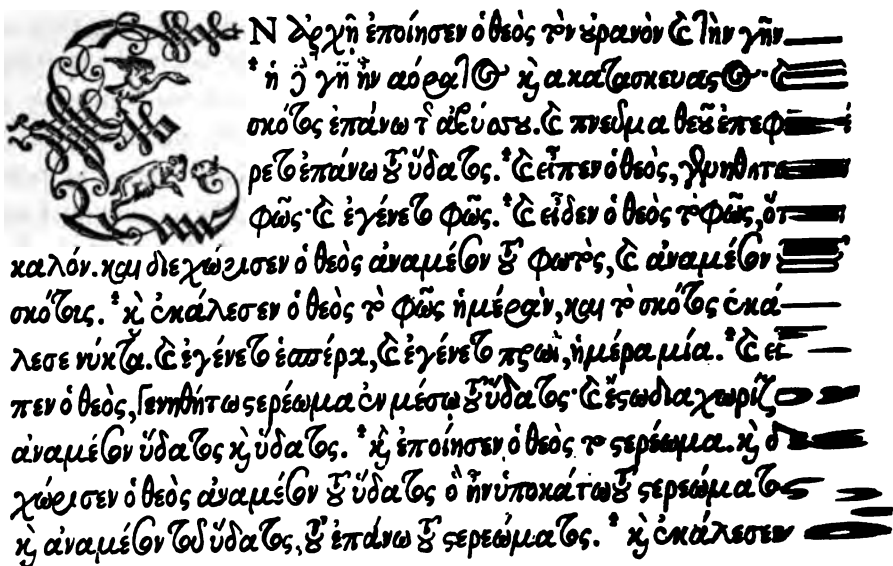 ΕΝ ἀρχῇ ἐποίησεν ὁ θεὸς τὸν οὐρανὸν καὶ τὴν γῆν
ἡ δὲ γῆ ἦν ἀόρατος καὶ ἀκατασκεύαστος· καὶ
σκότος ἐπάνω τῆς ἀβύσσου. καὶ πνεῦμα θεοῦ ἐπεφέ
ρετο ἐπάνω τοῦ ὕδατος. καὶ εἶπεν ὁ θεὸς, γενηθήτω
φῶς· καὶ ἐγένετο φῶς. καὶ εἶδεν ὁ θεὸς τὸ φῶς, ὅτι
καλόν. καὶ διεχώρισεν ὁ θεὸς ἀναμέσον τοῦ φωτὸς, καὶ ἀναμέσον τοῦ
σκότους. καὶ ἐκάλεσεν ὁ θεὸς τὸ φῶς ἡμέραν, καὶ τὸ σκότος ἐκά
λεσε νύκτα. καὶ ἐγένετο ἑσπέρα, καὶ ἐγένετο πρωὶ, ἡμέρα μία. καὶ εἶ
πεν ὁ θεὸς, Γενηθήτω στερέωμα ἐν μέσῳ τοῦ ὕδατος· καὶ ἔστω διαχωρίζον
ἀναμέσον ὕδατος καὶ ὕδατος. καὶ ἐποίησεν ὁ θεὸς τὸ στερέωμα. καὶ διε
χώρισεν ὁ θεὸς ἀναμέσον τοῦ ὕδατος ὃ ἦν ὑποκάτω τοῦ στερεώματος
καὶ ἀναμέσον τοῦ ὕδατος, τοῦ ἐπάνω τοῦ στερεώματος. καὶ ἐκάλεσεν